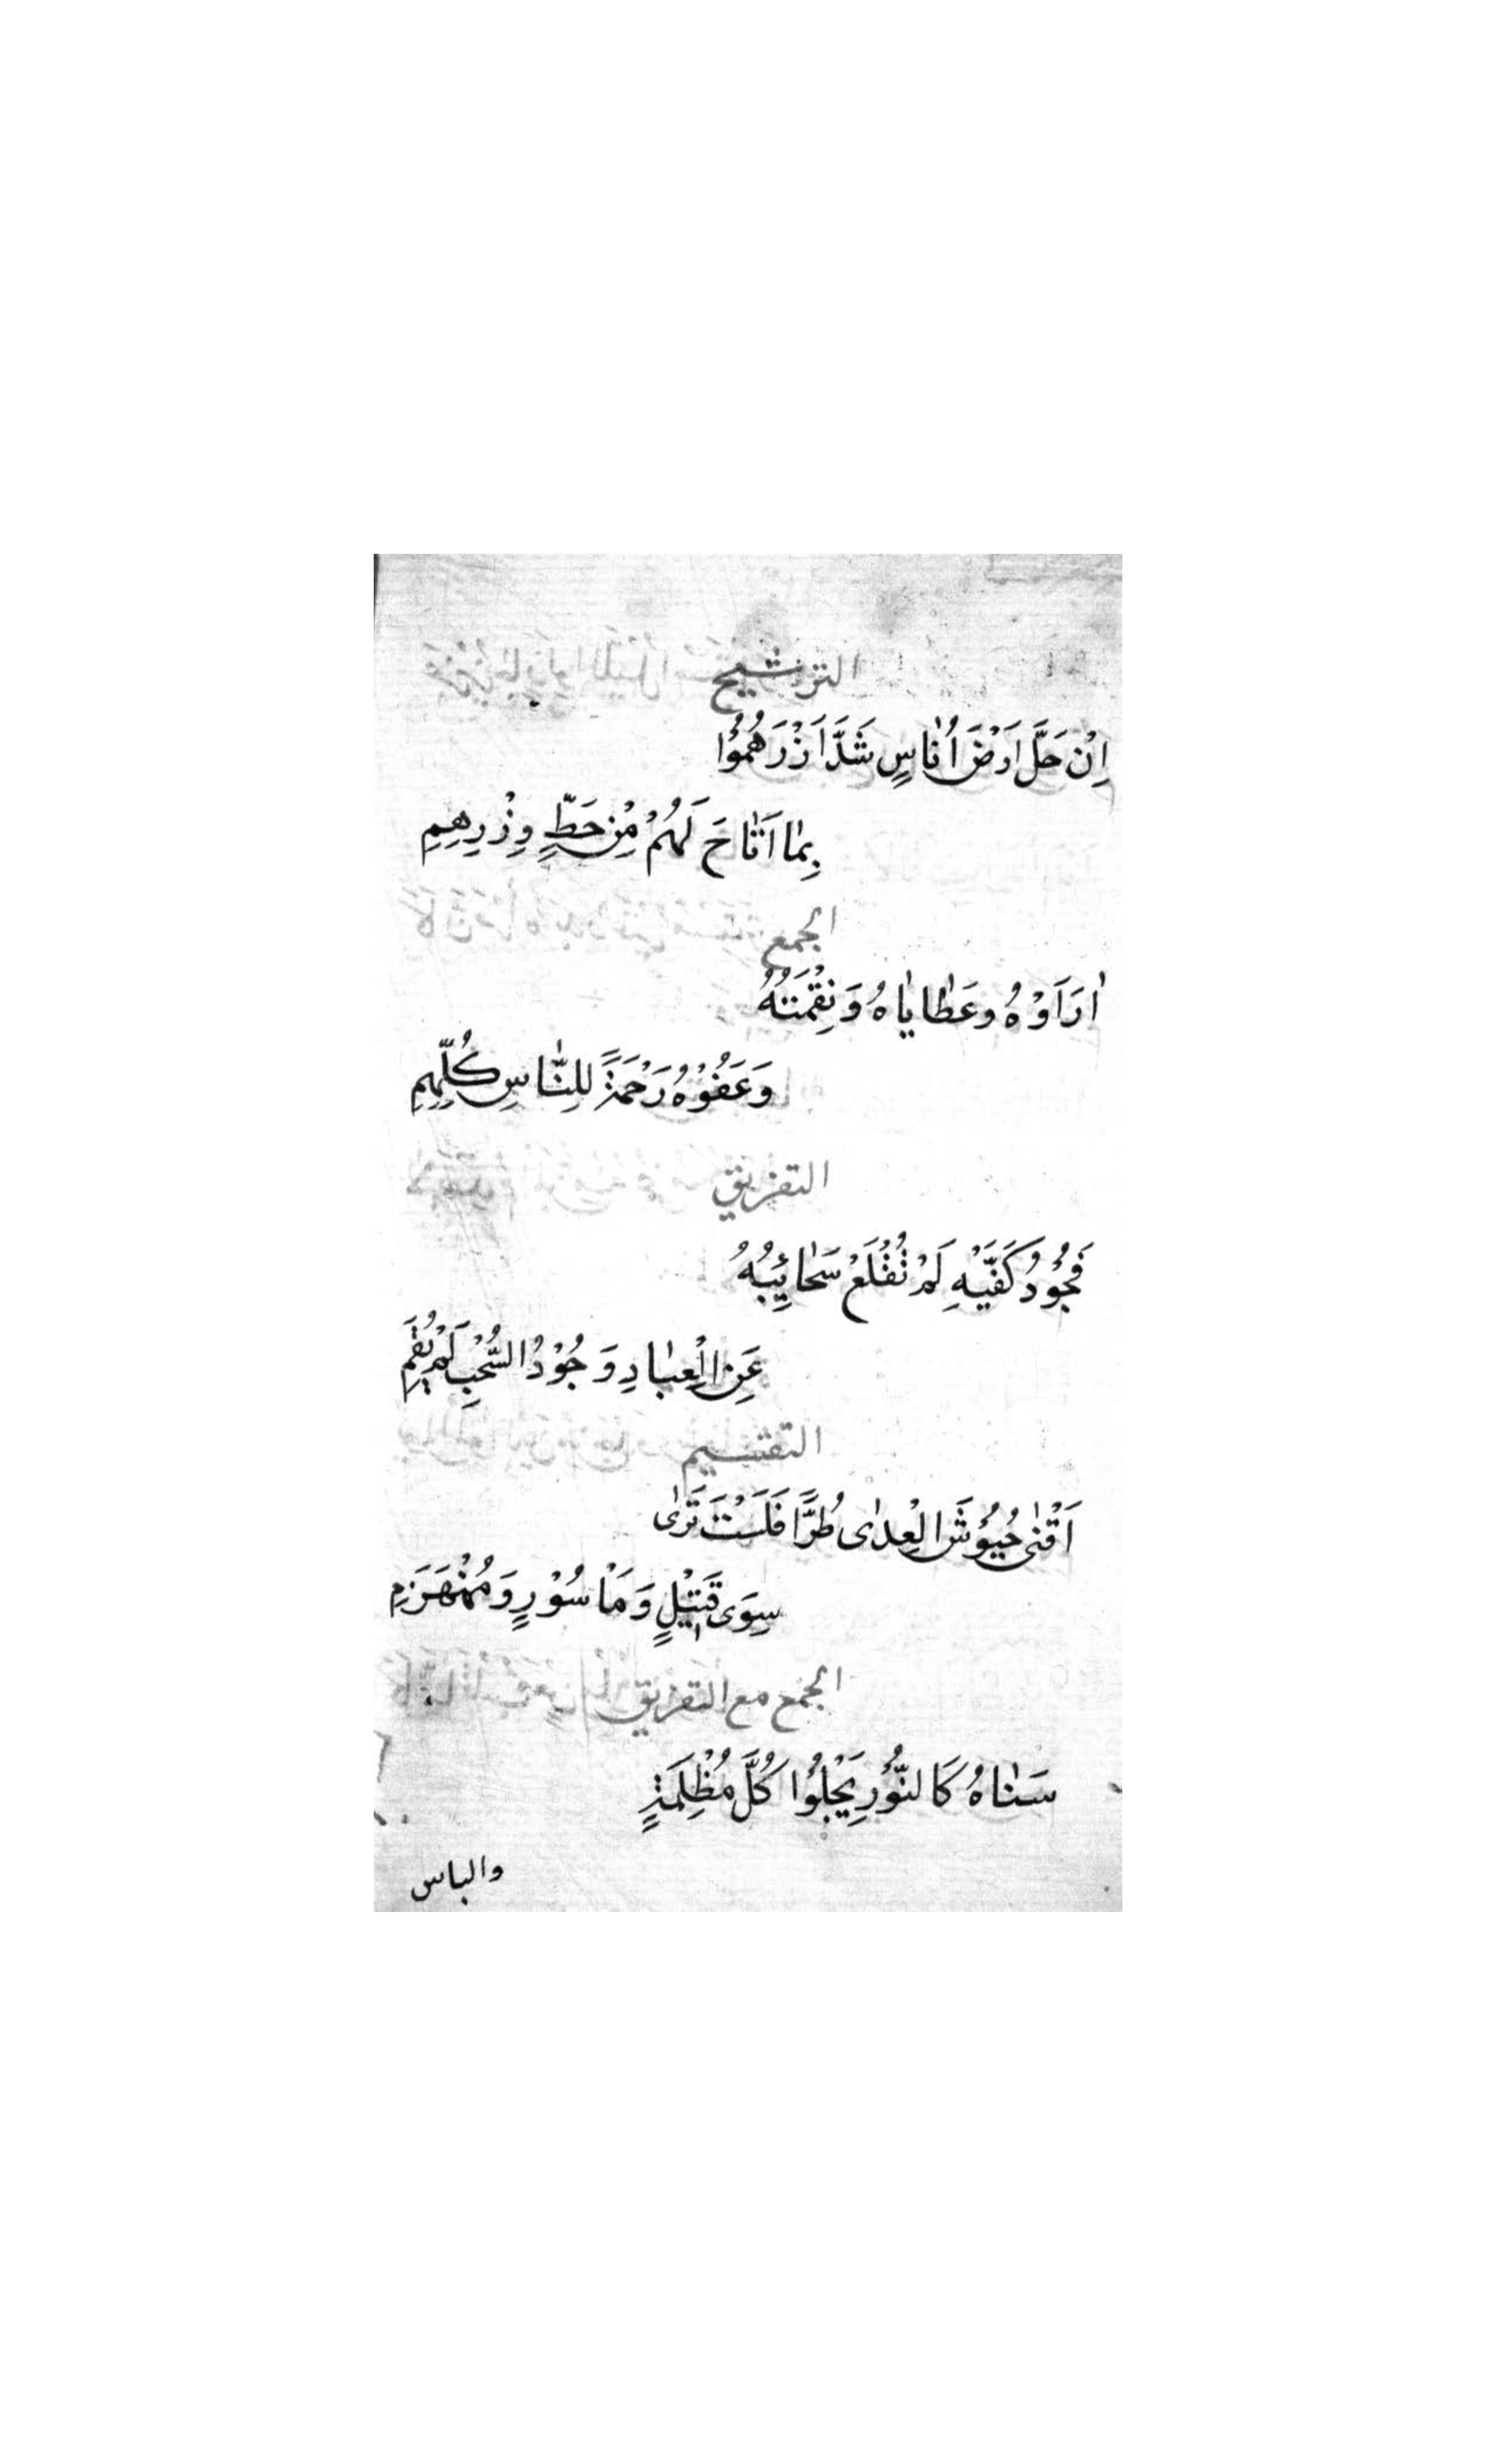 الترشيح
اِنْ حَلَّ اَرْضَ اُنٰاسٍ شَدَّ اَزْرَهُمُوْا
بِمٰا اَتٰاحَ لَهُمْ مِنْ حَطِّ وِزْرِهِمِ
الجمع
اٰرَاَوْهُ وعَطٰايٰاهُ وَنِقْمَتُهُ
وَعَفُوْهُ رَحْمَةً لِلنّٰاسِ كُلِّهِمِ
التفريق
فَجُوْدُ كَفَّيْهِ لَمْ تُقْلَعْ سَحٰائِبُهُ
عَنِ الْعِبٰادِ وَجُوْدُ السُّحْبِ لَمْ يُقِمِ
التقسيم
اَفْنٰى جُيُوْشَ الْعِدٰى طُرًّا فَلَسْتَ تَرٰى
سِوَى قَتِيْلٍ وَمَاْسُوْرٍ وَمُنْهَزِمِ
الجمع مع التفريق
سَنٰاهُ كَالنُّوْرِ يَجْلُوْا كُلَّ مُظْلِمَةٍ
والباس